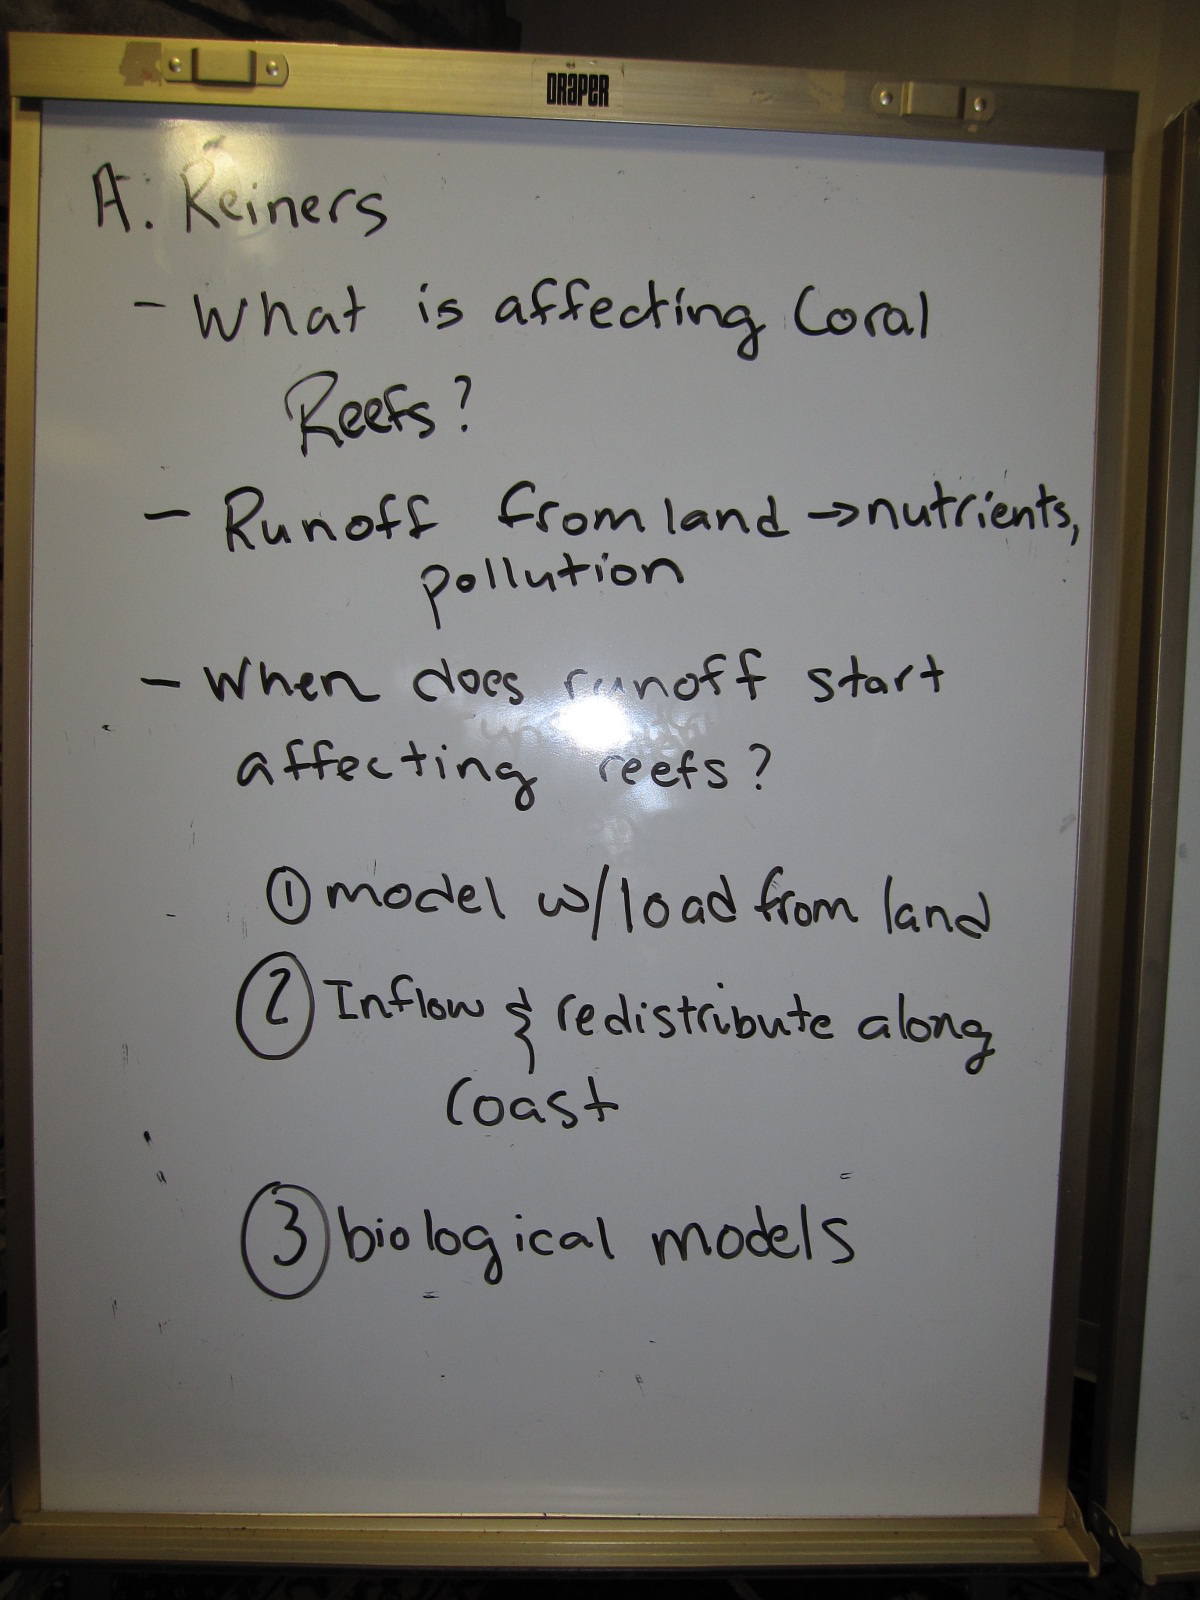 DRAPER
A. Reiners
- What is affecting Coral
Reefs?
- Runoff from land → nutrients,
pollution
- When does runoff start
affecting reefs?
① model w/load from land
② Inflow & redistribute along
Coast
③ biological models